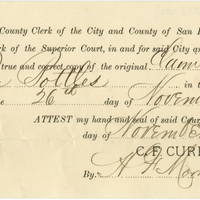 County Clerk of the City and County of San
rk of the Superior Court, in and for said City an
true and correct copy of the original
in the
26th day of Novem
ATTEST my hand and seal of said Cour
day of November
C. F. CURR
By: